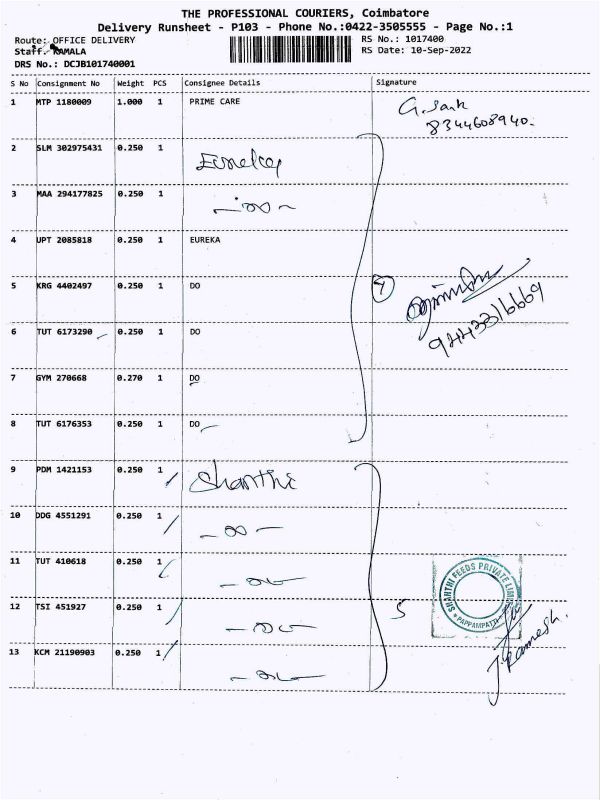 THE PROFESSIONAL COURIERS, Coimbatore
Delivery Runsheet - P103 - Phone No.:0422-3505555 - Page No.:1
Route: OFFICE DELIVERY RS No.: 1017400
Staff: KAMALA RS Date: 10-Sep-2022
DRS No.: DCJB101740001
S No Consignment No Weight PCS Consignee Details Signature
1 MTP 1180009 1.000 1 PRIME CARE
8344608940.
2 SLM 302975431 0.250 1
3 MAA 294177825 0.250 1
4 UPT 2085818 0.250 1 EUREKA
5 KRG 4402497 0.250 1 DO
9443316669
6 TUT 6173290 0.250 1 DO
7 GYM 270668 0.270 1 DO
8 TUT 6176353 0.250 1 DO
9 PDM 1421153 0.250 1 Shanthi
10 DDG 4551291 0.250 1
11 TUT 410618 0.250 1
SHANTHI FEEDS PRIVATE LIMI
PAPPAMPATTI
12 TSI 451927 0.250 1 5
J. Ramesh.
13 KCM 21190903 0.250 1